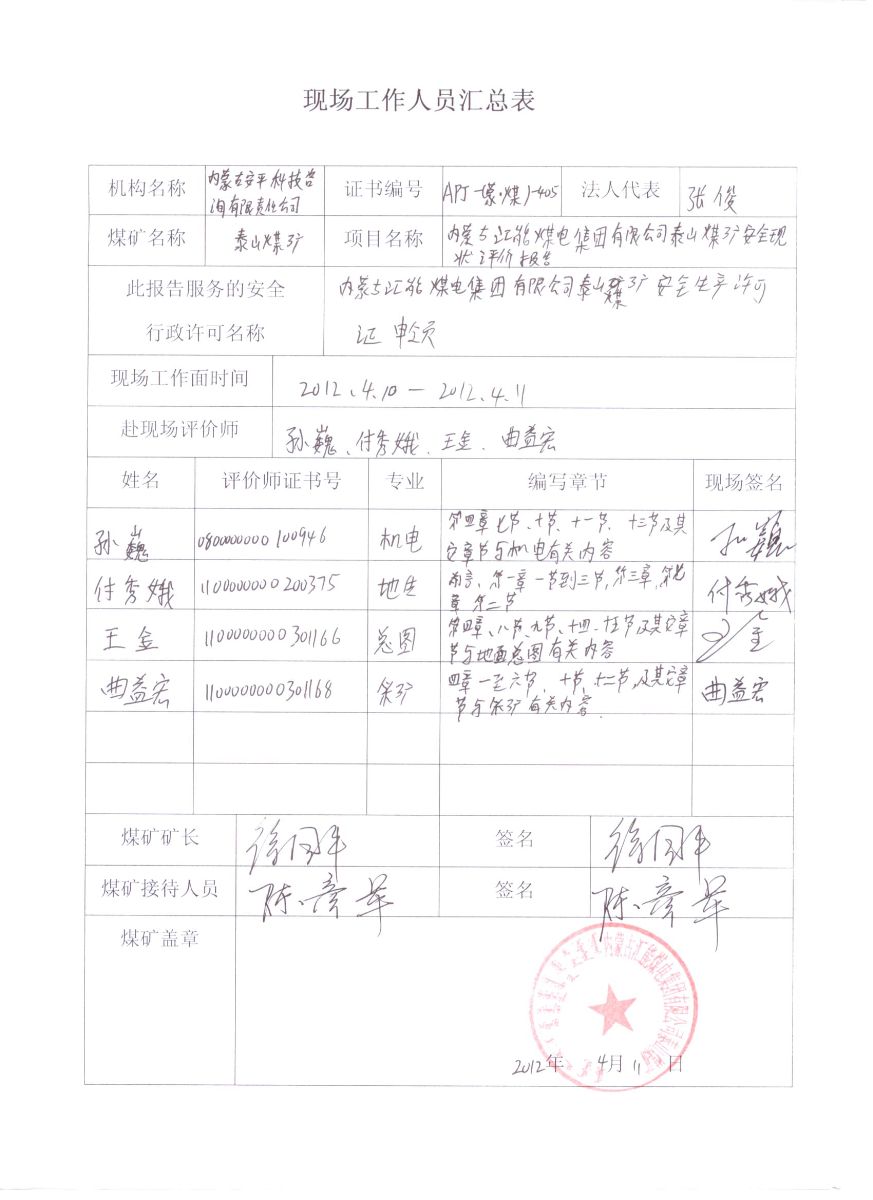 现场工作人员汇总表
机构名称 内蒙古安平科技咨询有限责任公司 证书编号 APJ-(蒙·煤)-405 法人代表 张俊
煤矿名称 泰山煤矿 项目名称 内蒙古汇能煤电集团有限公司泰山煤矿安全现
状评价报告
此报告服务的安全 内蒙古汇能煤电集团有限公司泰山煤矿安全生产许可
行政许可名称 证申领
现场工作面时间 2012.4.10 — 2012.4.11
赴现场评价师 孙巍、付秀娥、王金、曲益宏
姓名 评价师证书号 专业 编写章节 现场签名
孙巍 0800000000100946 机电 第四章七节、十节、十一节、十三节及其 孙巍
它章节与机电有关内容
付秀娥 1100000000200375 地生 前言、第一章一节到三节,第三章,第 付秀娥
章第二节
王金 1100000000301166 总图 第四章、八节、九节、十四、十五节及其它章 王金
节与地面总图有关内容
曲益宏 1100000000301168 采矿 四章一至六节、十节、十二节,及其它章 曲益宏
节与采矿有关内容.
煤矿矿长 签名
煤矿接待人员 陈彦军 签名 陈彦军
煤矿盖章
内蒙古汇能煤电集团有限公司泰山煤矿
2012年 4月 11 日